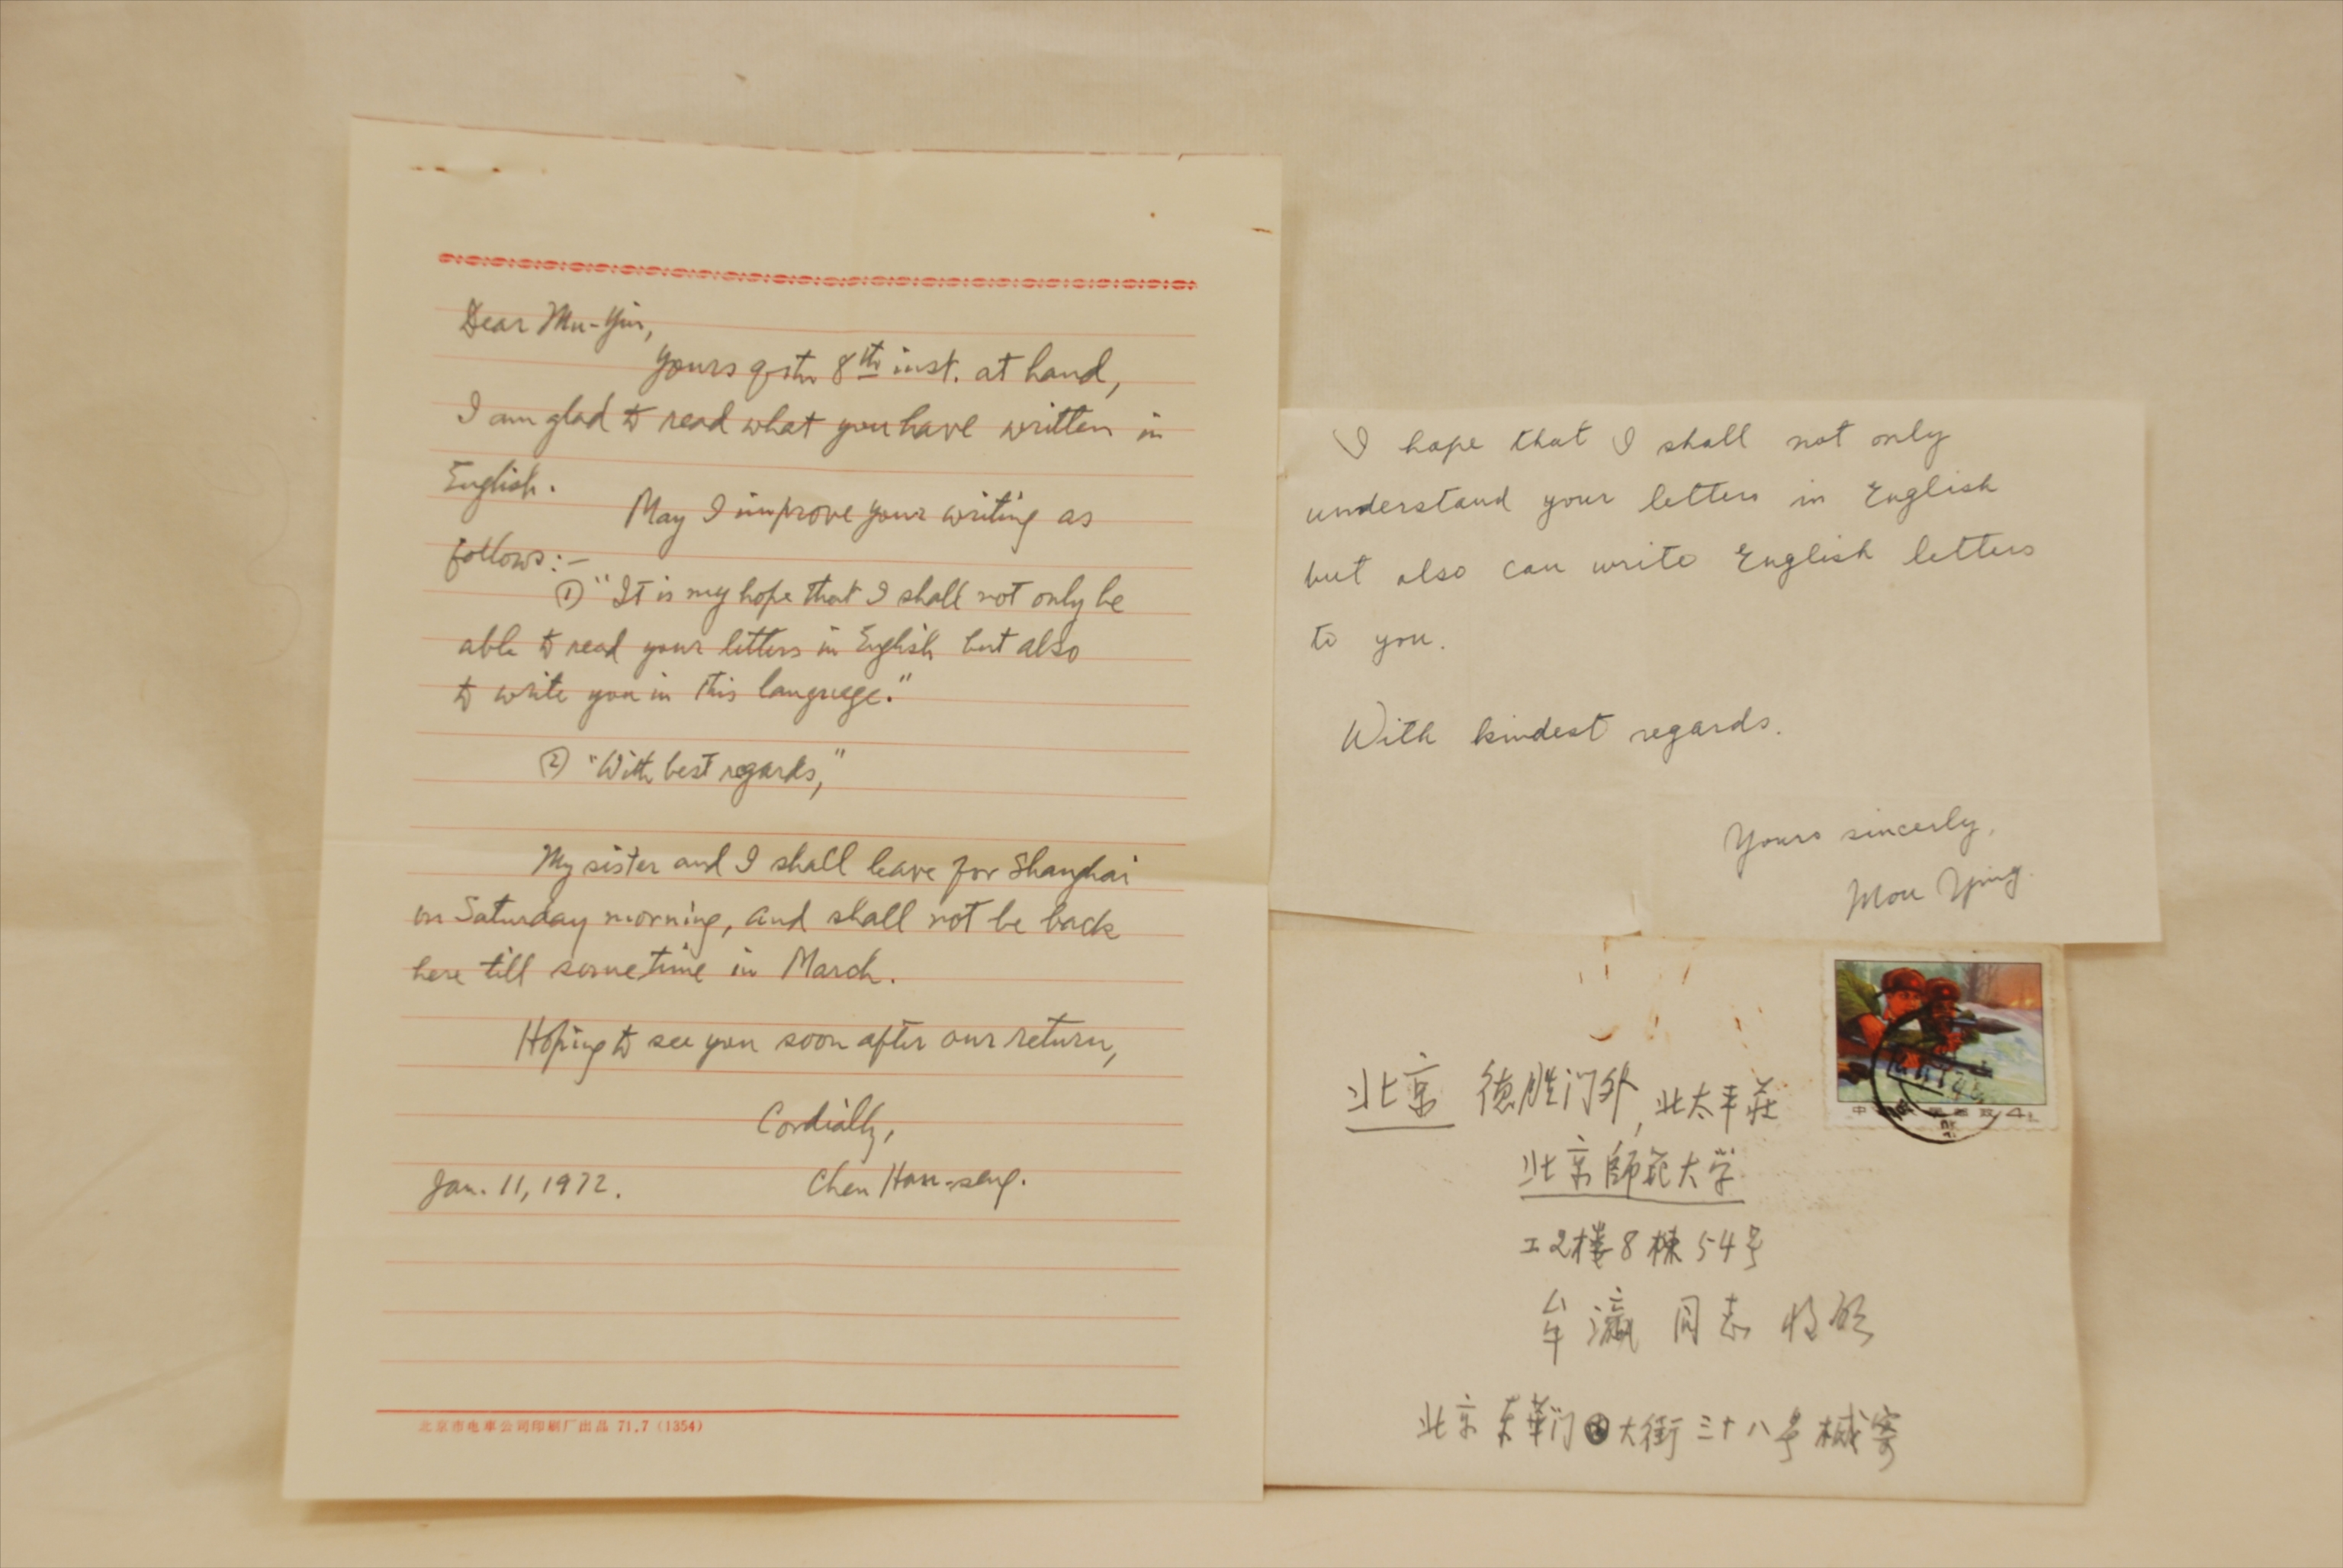 Dear Mu-Yin,
Yours of the 8th inst. at hand,
I am glad to read what you have written in
English.
May I improve your writing as
follows:—
① "It is my hope that I shall not only be
able to read your letters in English but also
to write you in this language."
② "With best regards,"
My sister and I shall leave for Shanghai
on Saturday morning, and shall not be back
here till sometime in March.
Hoping to see you soon after our return,
Cordially,
Jan. 11, 1972. Chen Han-seng.
北京市电車公司印刷厂出品 71.7 (1354)
I hope that I shall not only
understand your letters in English
but also can write English letters
to you.
With kindest regards.
Yours sincerly,
Mou Ying.
北京 德胜门外, 北太平莊
北京師范大学
工2楼8栋54号
牟瀛 同志 收启
北京东華门大街三十八号 械寄
中